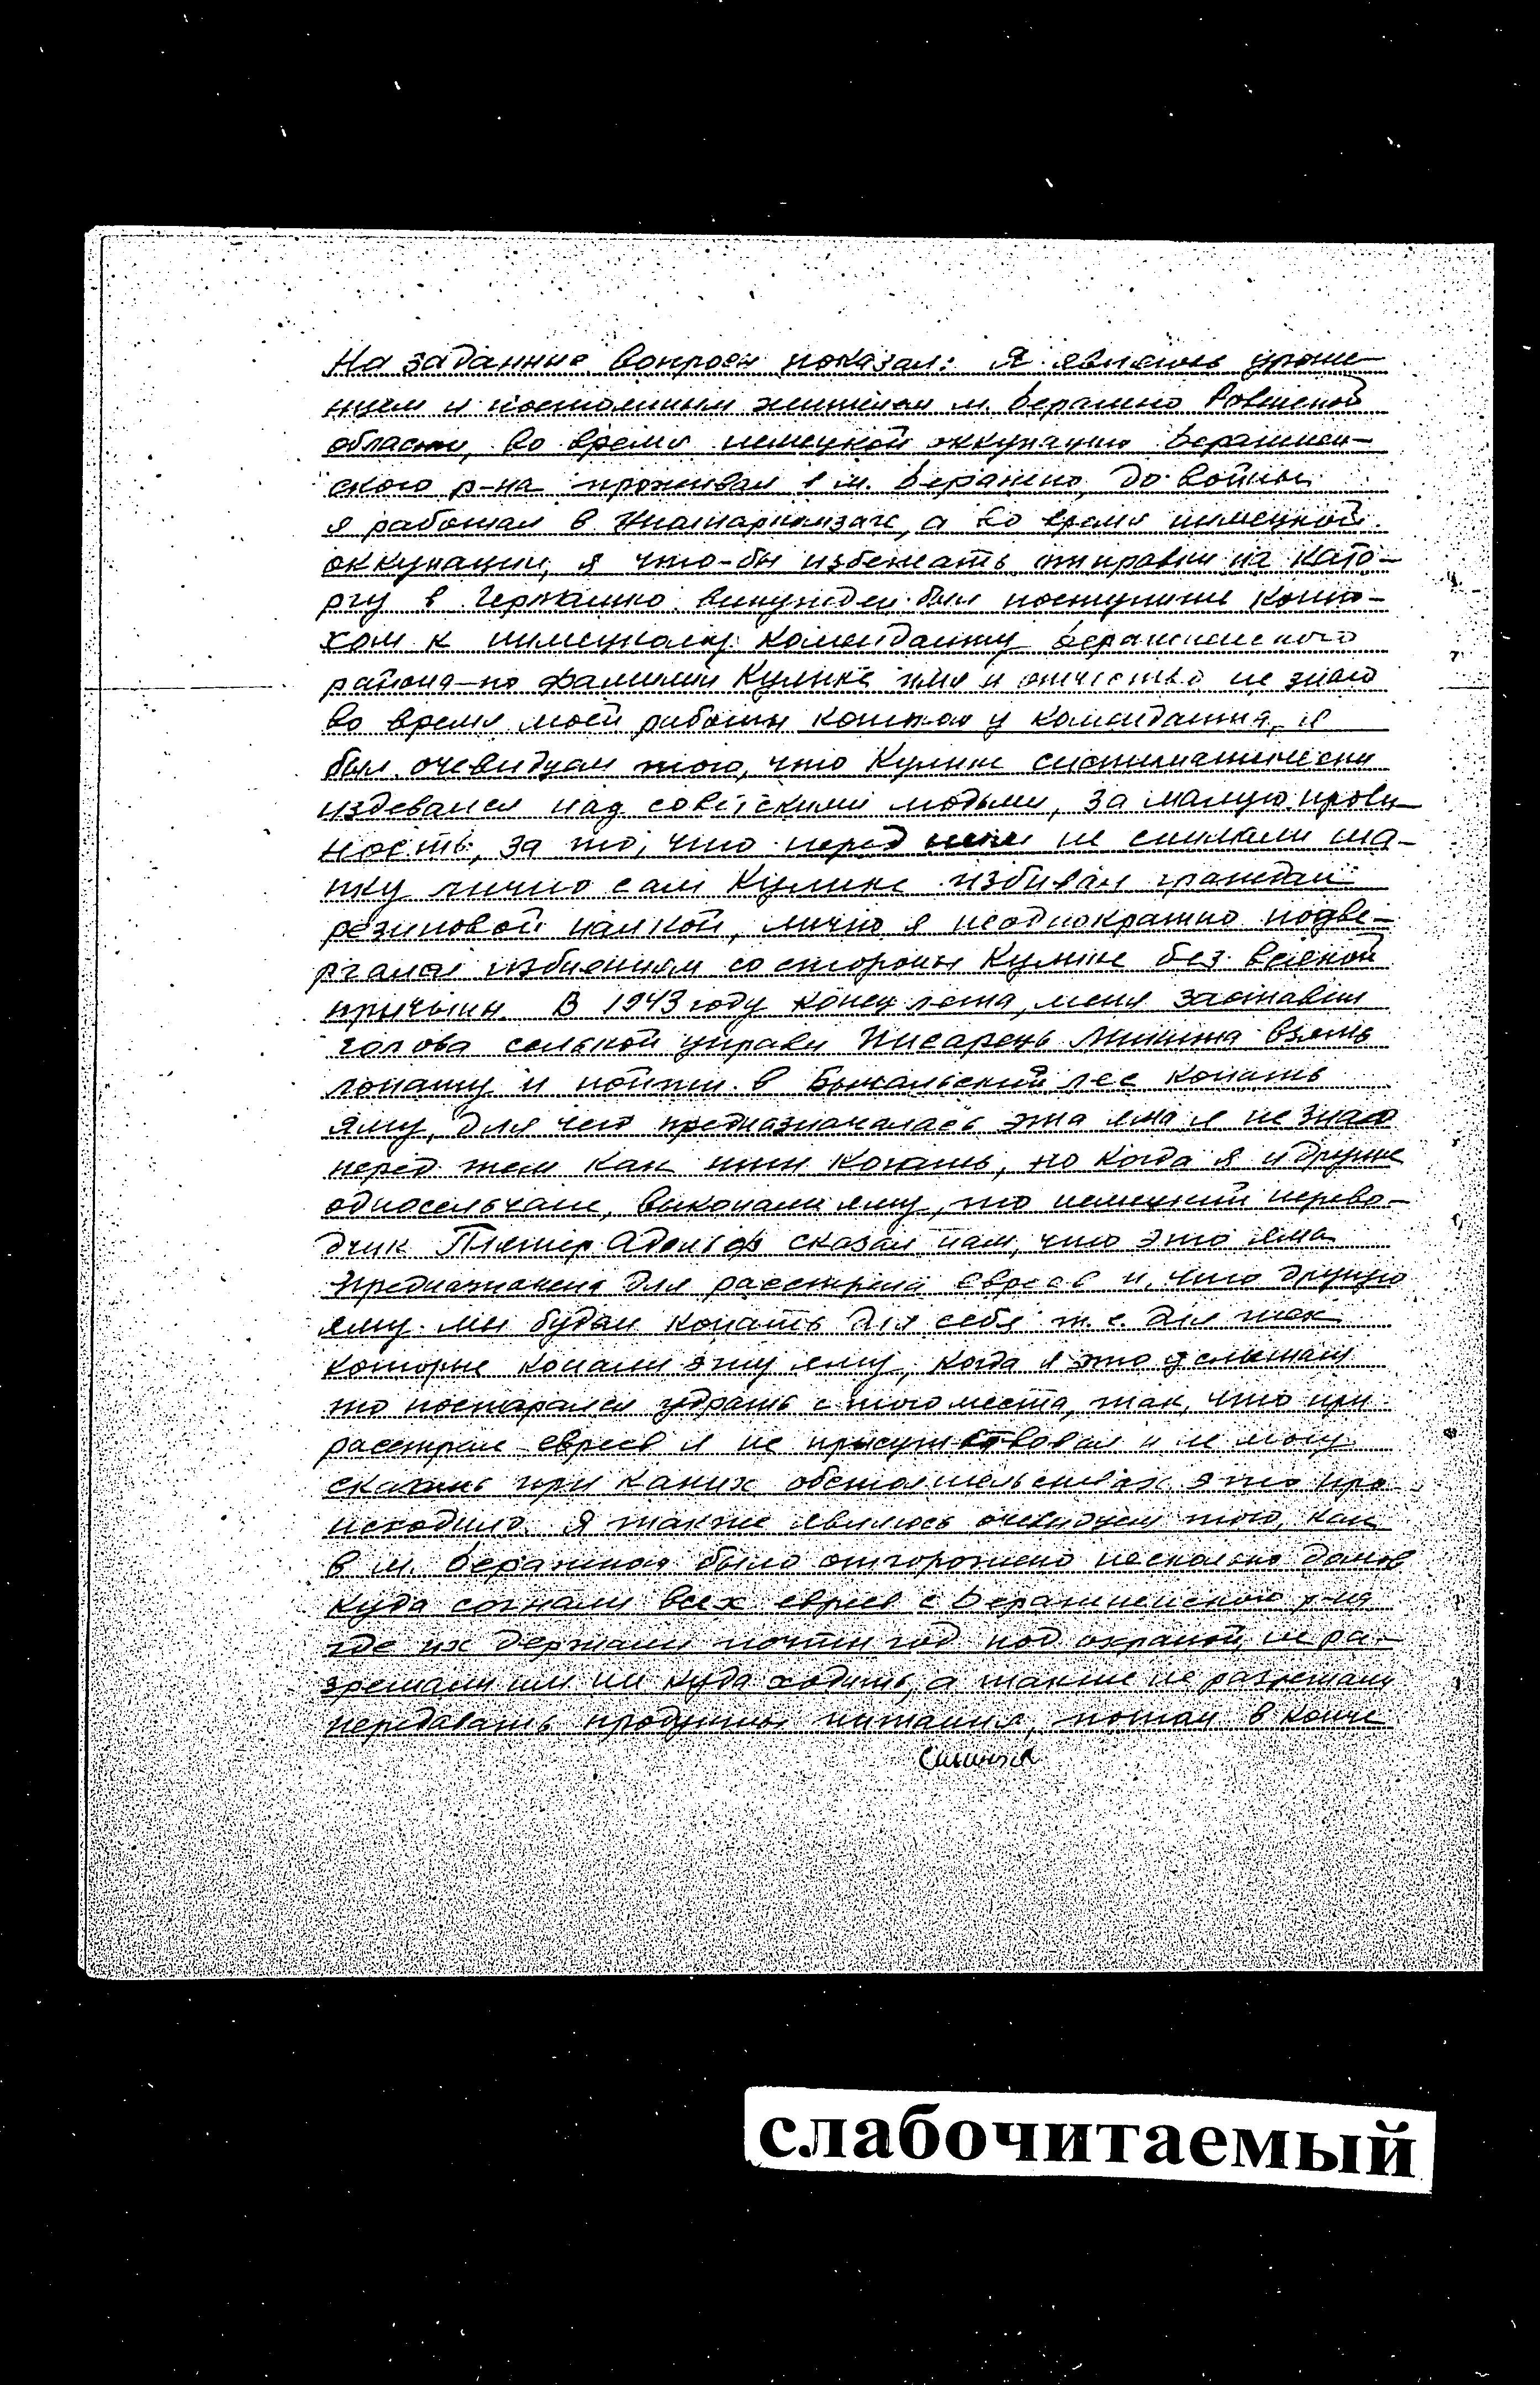 На заданные вопросы показал: Я являюсь уроже-
нцем и постоянным жителем м. Бережно Ровенской
области, во время немецкой оккупации Бережнен-
ского р-на проживал в м. Бережно, до войны
я работал в, а во время немецкой
оккупации, я что-бы избежать отправки на като-
ргу в Германию вынужден был поступить коню-
хом к немецкому коменданту Бережненского
района-по фамилии Кулике имя и отчество не знаю
во время моей работы конюхом у коменданта, я
был очевидцем того, что Кулике систематически
издевался над советскими людьми, за малую прови-
ность, за то, что перед ним не снимали ша-
пку лично сам Кулике избивал граждан
резиновой палкой, лично я неоднократно подве-
ргался избиениям со стороны Кулике без всякой
причины. В 1943 году конец лета, меня заставил
голова сельской управы Писарець Микита взять
лопату и пойти в лес копать
яму, для чего предназначалась эта яма я не знаю
перед тем как итти копать, но когда я и другие
односельчане, выкопали яму, то немецкий перево-
дчик Адольф сказал нам, что это яма
предназначена для расстрела евреев и, что другую
яму мы будем копать для себя т.е. для тех
которые копали эту яму, когда я это услышал
то постарался удрать с того места, так, что при
расстреле евреев я не присутствовал и не могу
сказать при каких обстоятельствах это про-
исходило. Я также являюсь очевидцем того, как
в м. Бережной было отгорожено несколько домов
куда согнали всех евреев с Бережненского р-на
где их держали почти год под охраной, не ра-
зрешали им ни куда ходить, а также не разрешали
передавать продукты питания, потом в конце
слабочитаемый